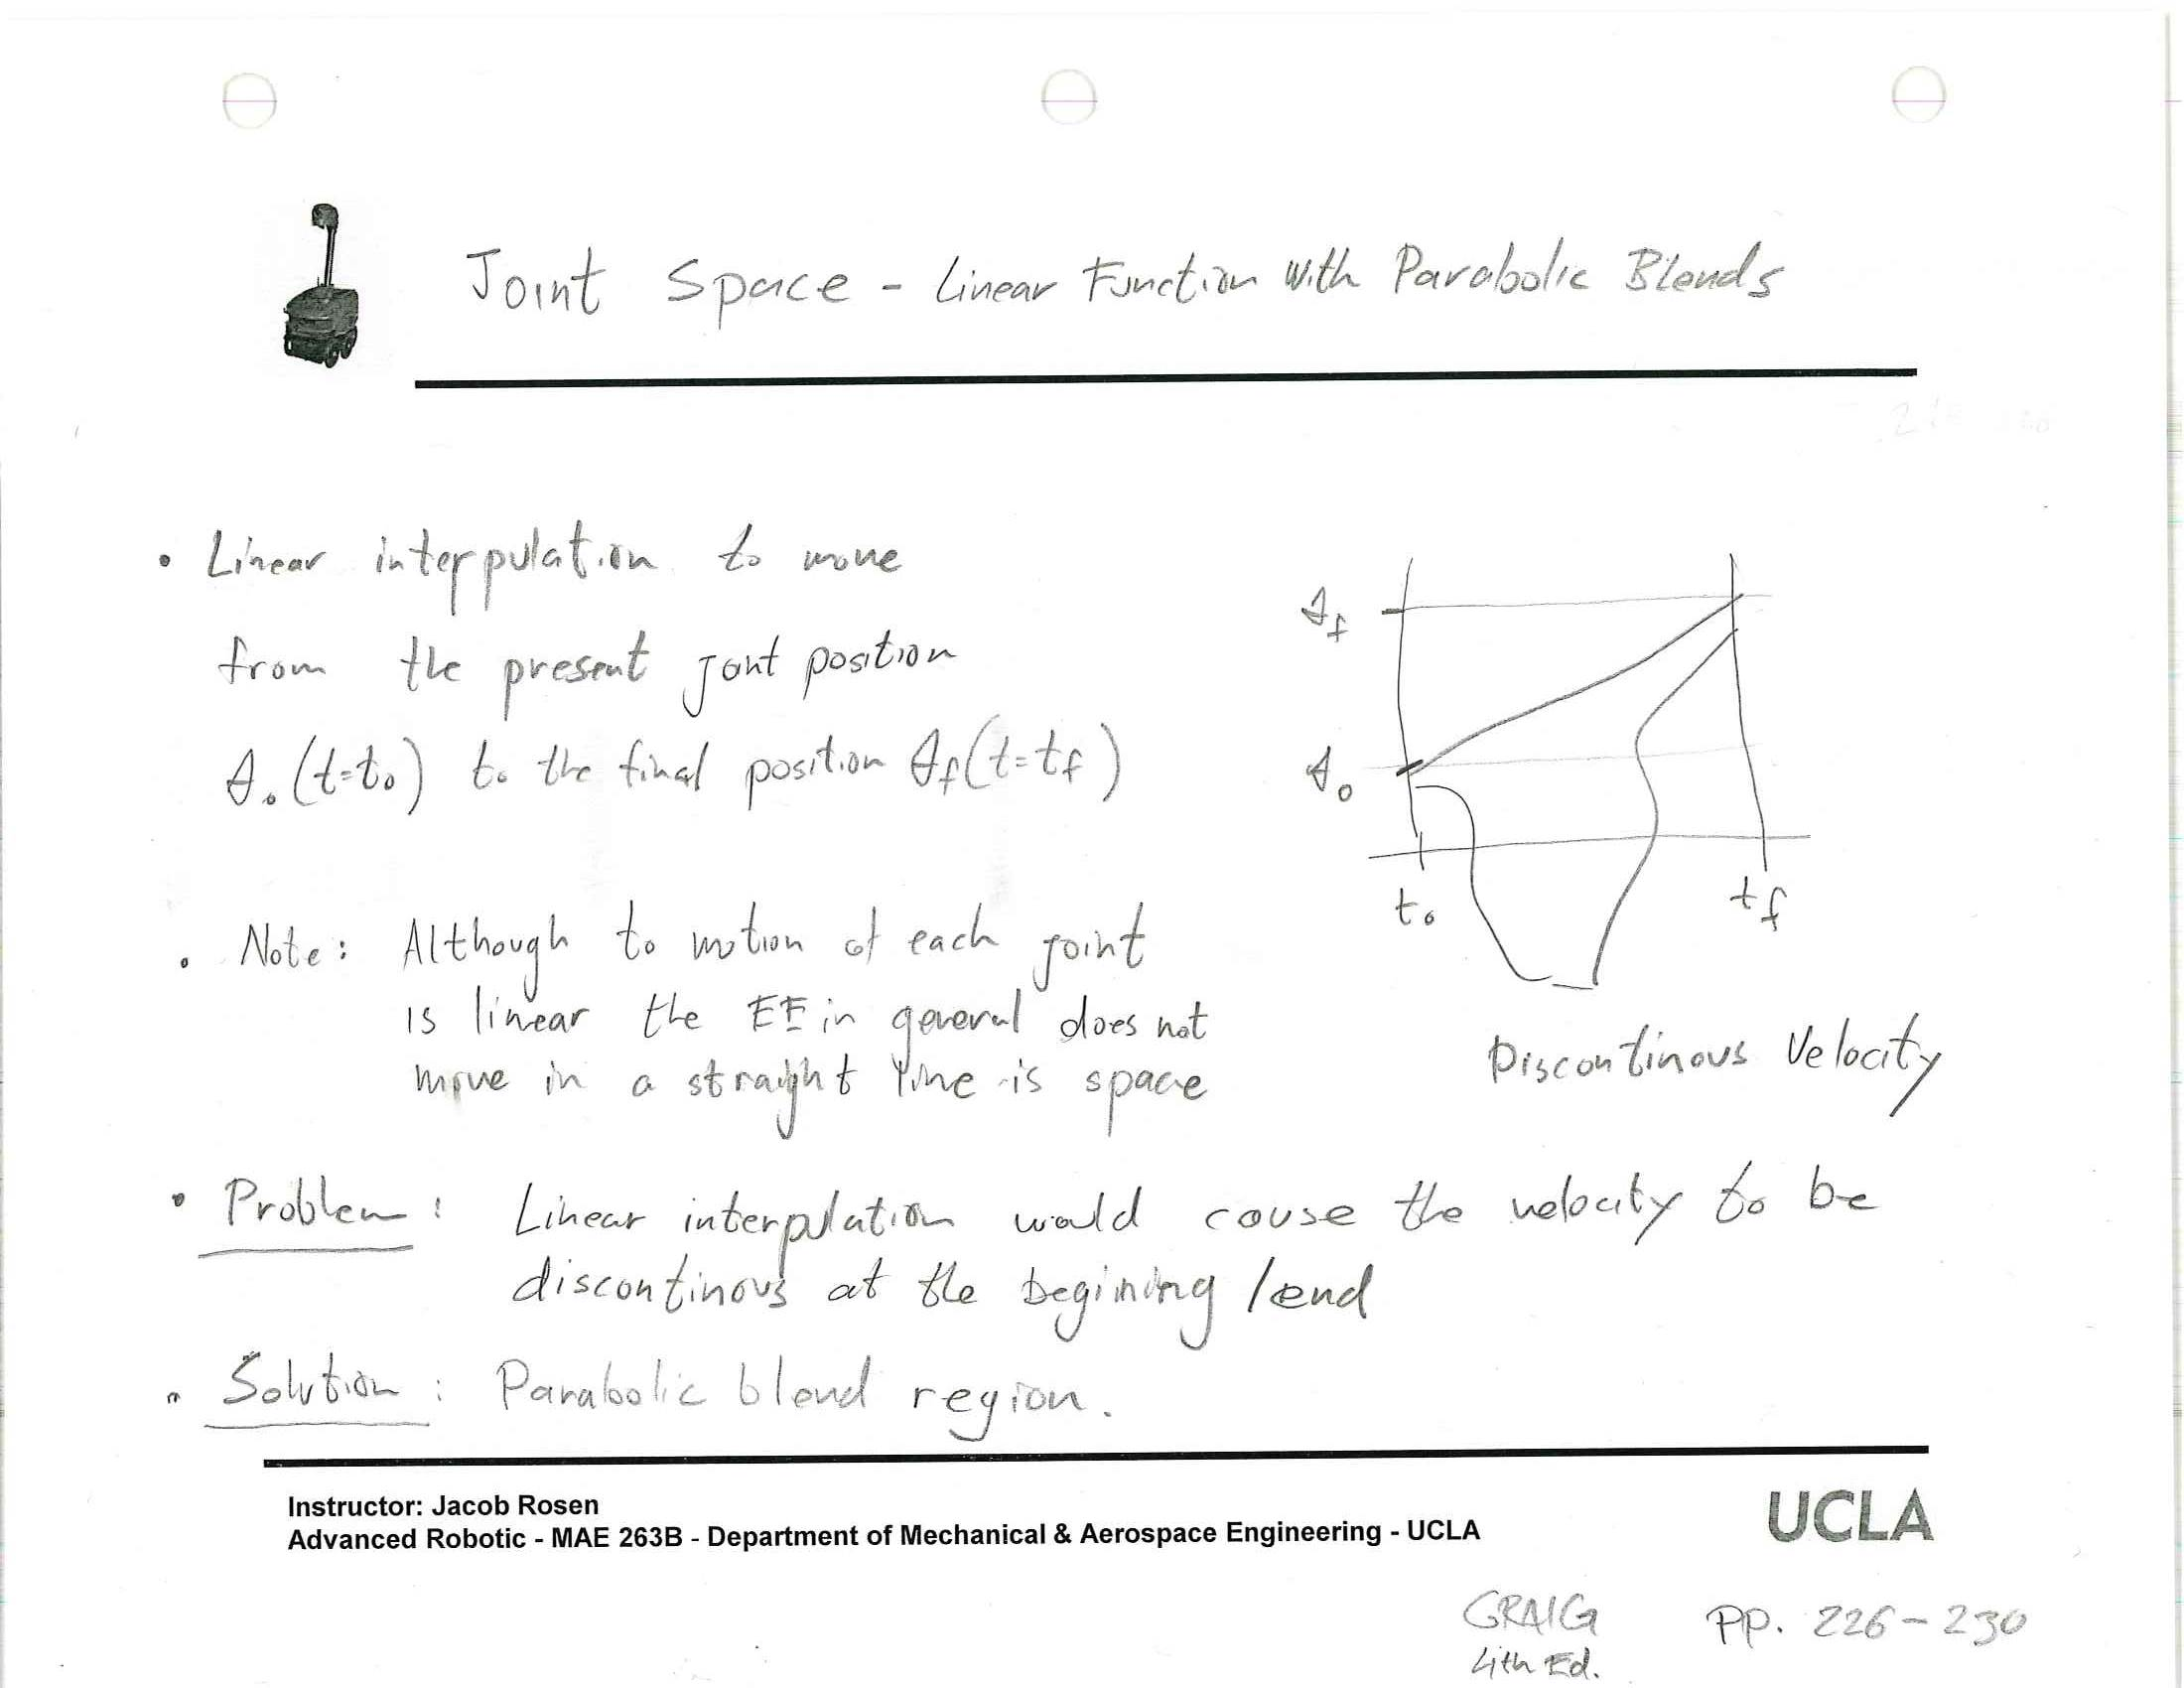 Joint Space - Linear Function with Parabolic Blends
• Linear interpulation to move
from the present joint position
θ₀(t=t₀) to the final position θf(t=tf)
θf
θ₀
t₀
tf
Discontinous Velocity
• Note: Although to motion of each joint
is linear the EE in general does not
move in a straight line is space
• Problem: Linear interpulation would couse the velocity to be
discontinous at the begining/end
• Solution: Parabolic blend region.
Instructor: Jacob Rosen
Advanced Robotic - MAE 263B - Department of Mechanical & Aerospace Engineering - UCLA
UCLA
GRAIG PP. 226-230
4th Ed.